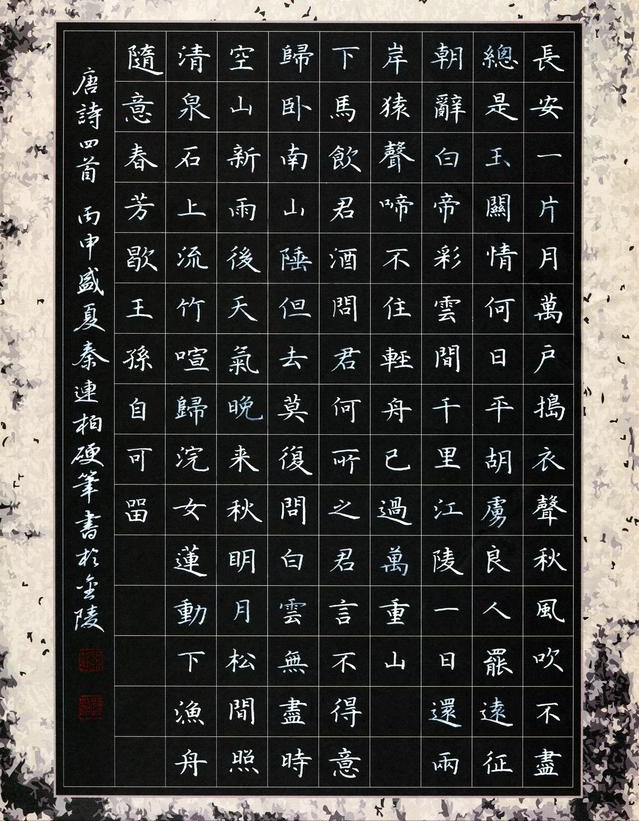 長安一片月萬戶搗衣聲秋風吹不盡
總是玉關情何日平胡虜良人罷遠征
朝辭白帝彩雲間千里江陵一日還兩
岸猿聲啼不住輕舟已過萬重山
下馬飲君酒問君何所之君言不得意
歸卧南山陲但去莫復問白雲無盡時
空山新雨後天氣晚来秋明月松間照
清泉石上流竹喧歸浣女蓮動下漁舟
隨意春芳歇王孫自可留
唐詩四首 丙申盛夏秦連柏硬筆書於金陵